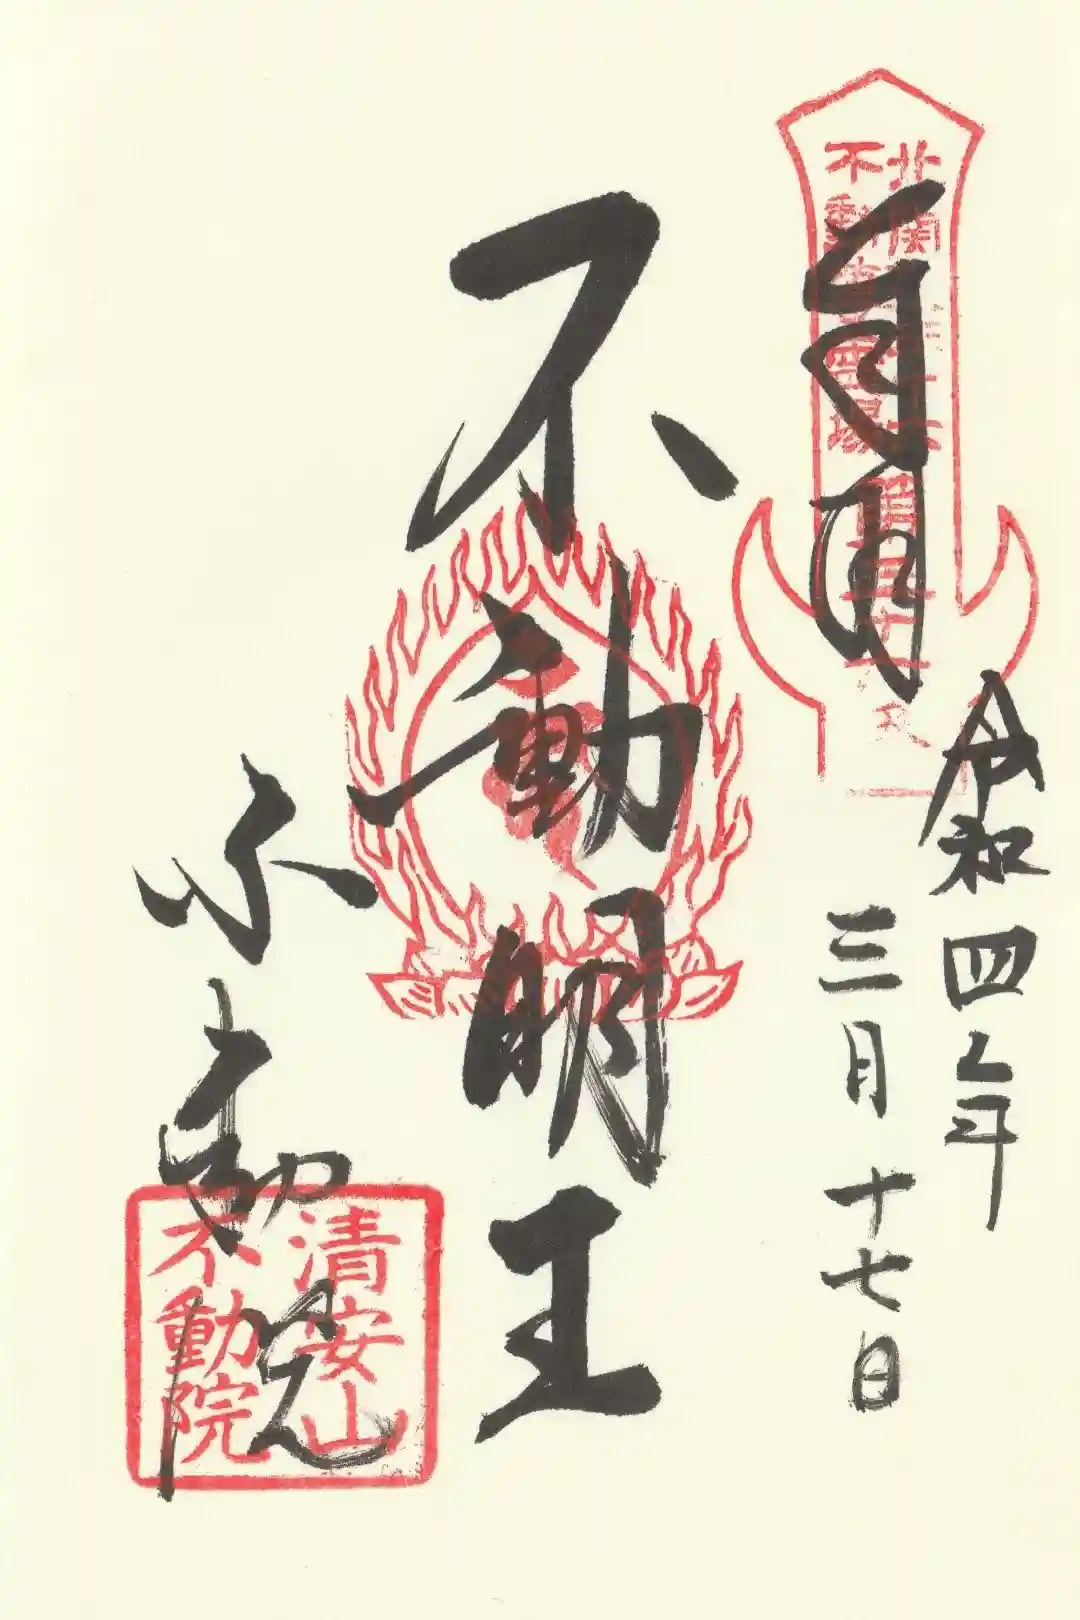 北関
不動尊霊場
令和四年
三月十七日
不動明王
不動院
清安山
不動院